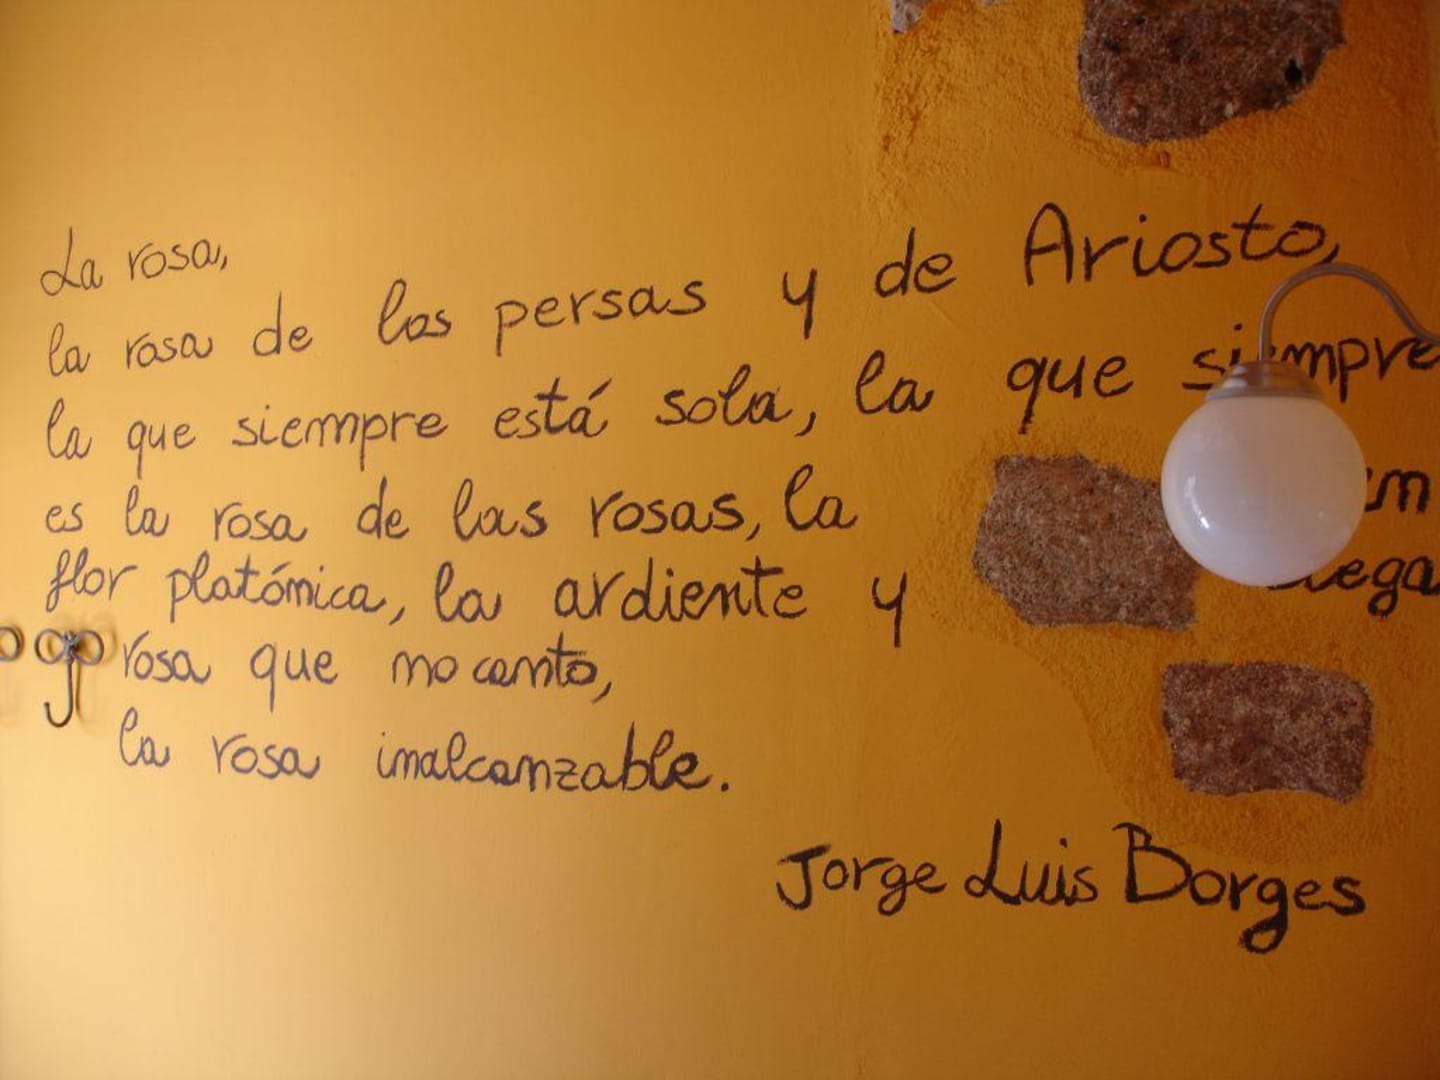 La rosa,
la rosa de los persas y de Ariosto,
la que siempre está sola, la que siempre
es la rosa de las rosas, la
flor platónica, la ardiente y
rosa que no canto,
la rosa inalcanzable.
Jorge Luis Borges